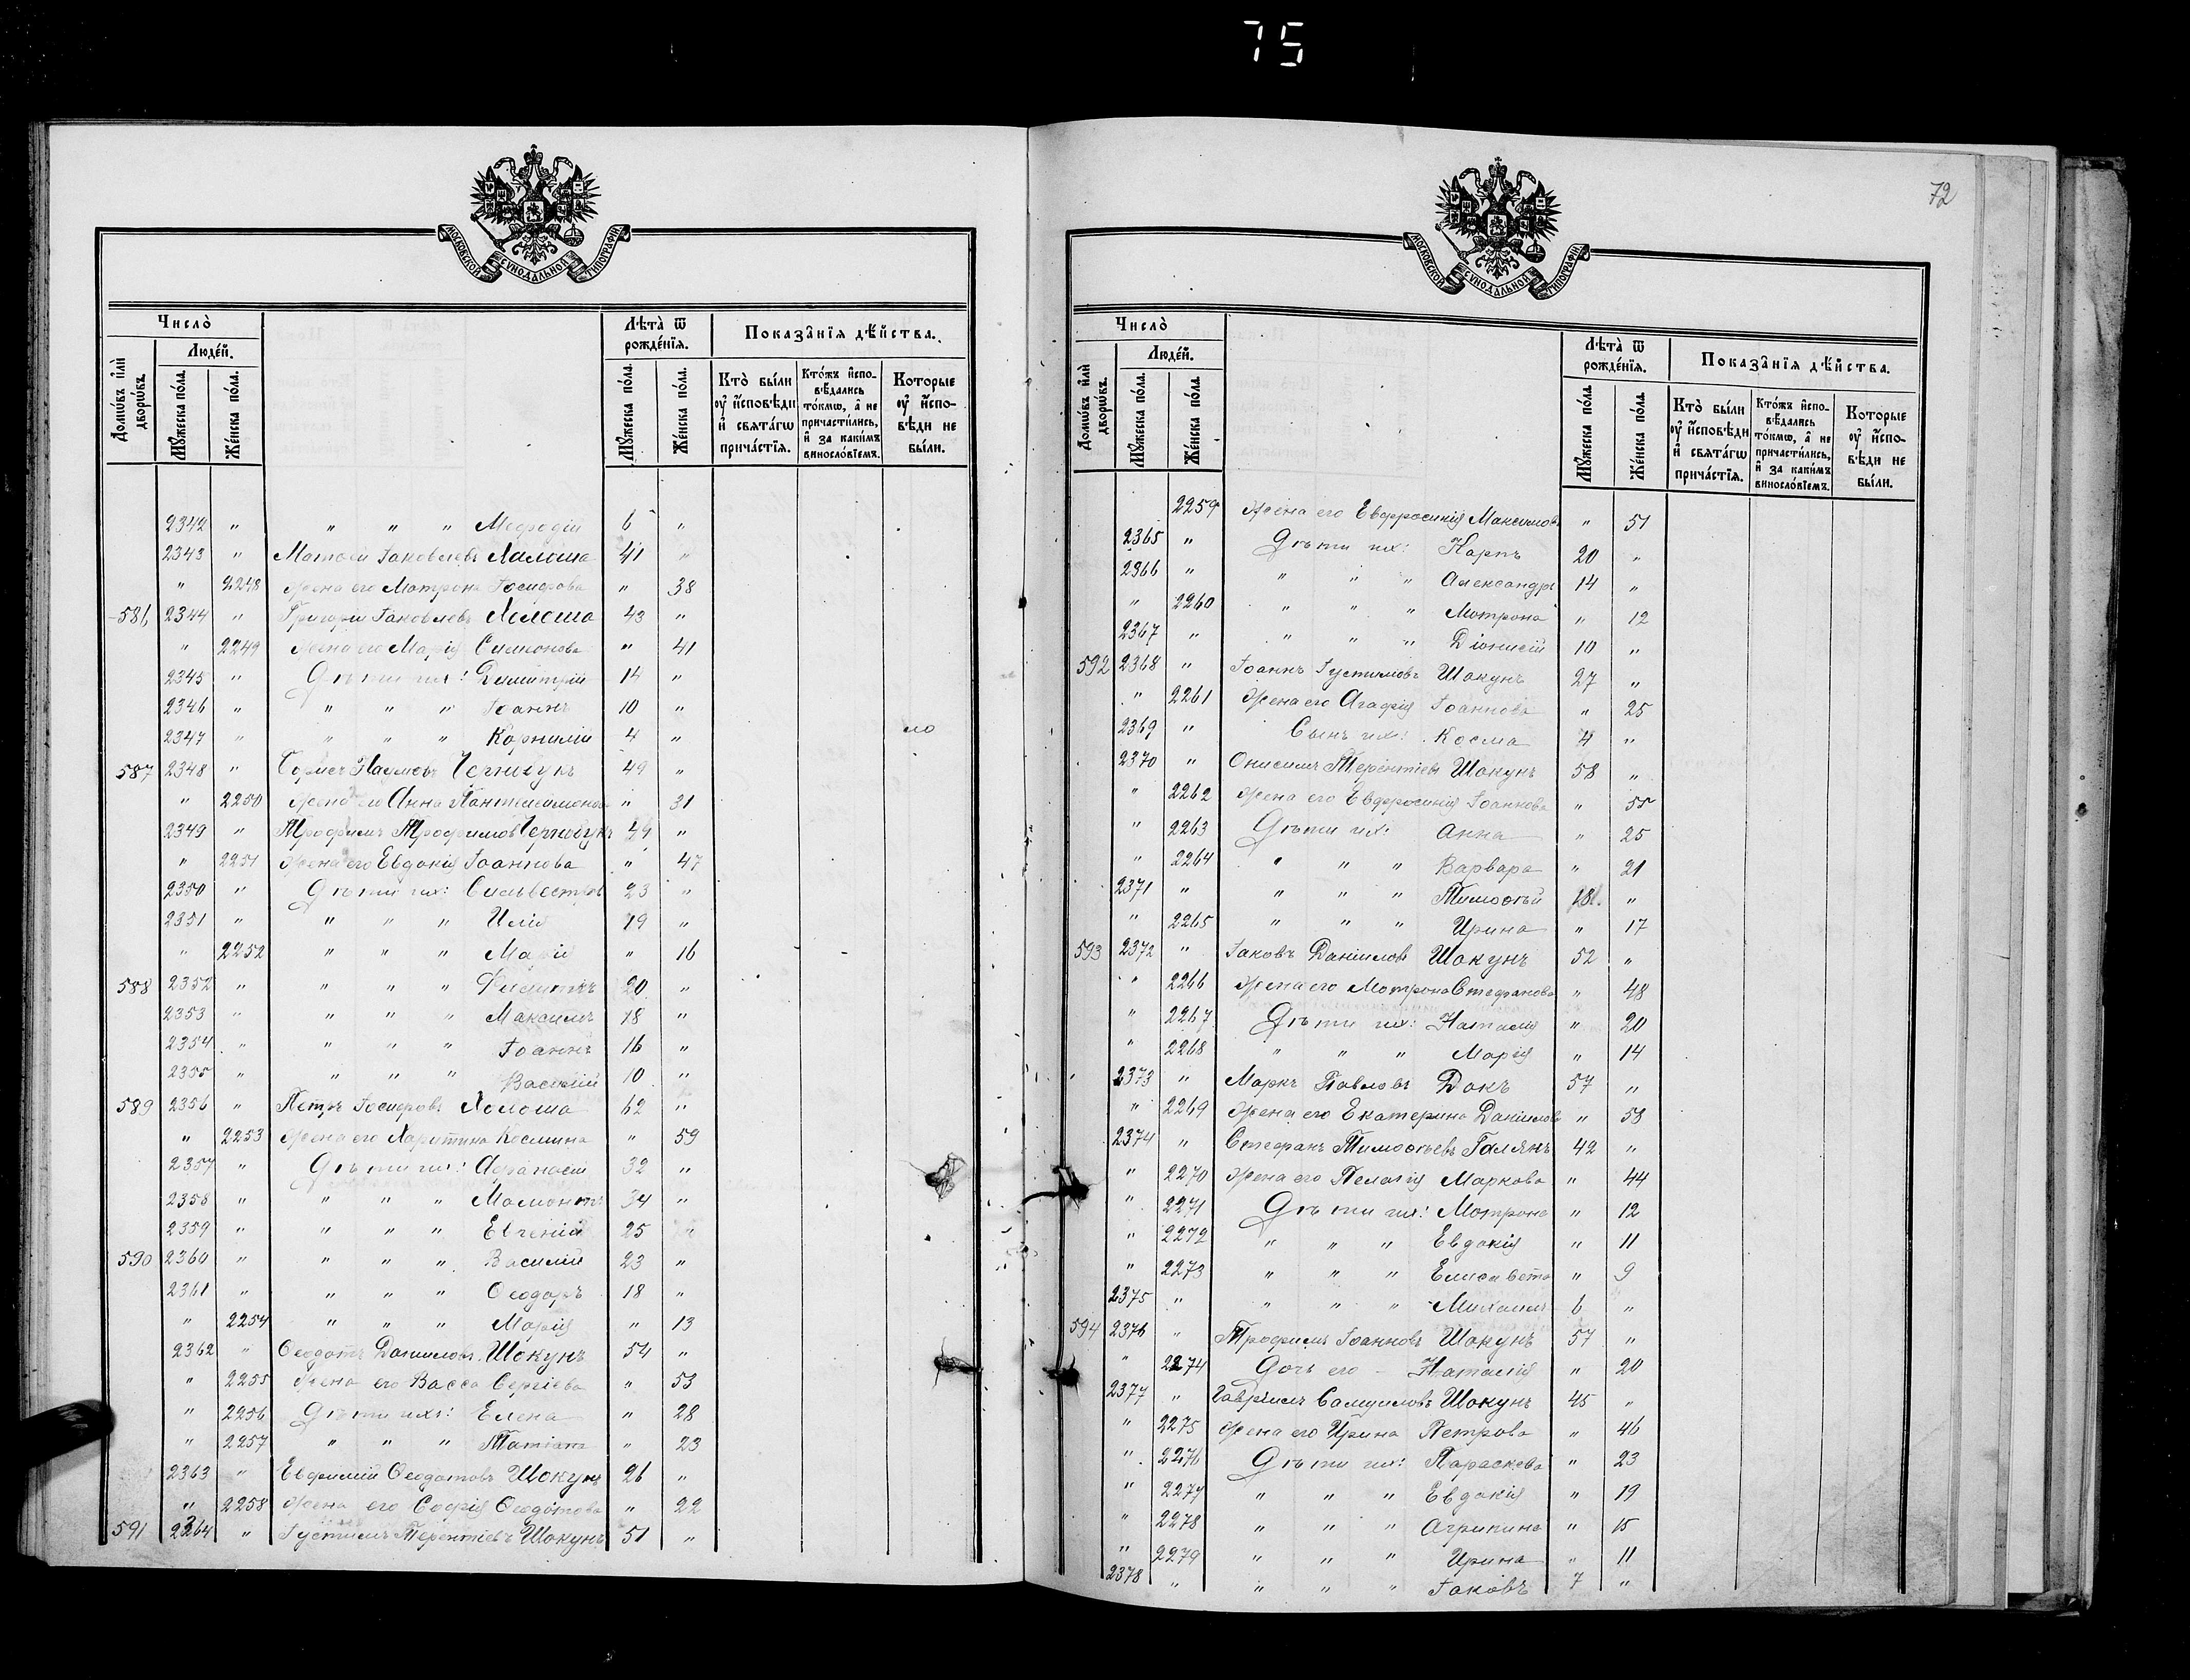 75
МОСКОВСКОЙ СѴНОДАЛЬНОЙ ТИПОГРАФІИ
Число̀
Людéй.
Домѡ́въ и҆лѝ дворѡ́въ.
Мꙋ́жеска по́ла.
Же́нска по́ла.
Лѣ́та ѿ рожде́нїѧ.
Мꙋ́жеска по́ла.
Же́нска по́ла.
Показа̑нїѧ дѣ́йства.
Кто̀ бы́ли ᲂу҆ и҆сповѣ́ди и҆ свѧта́гѡ прича́стїѧ.
Кто́жъ и҆сповѣ́дались то́кмѡ, а҆ не причасти́лись, и҆ за каки́мъ винослóвїемъ.
Которые ᲂу҆ и҆сповѣ́ди не бы́ли.
2342 " " " " Меѳодій 6 "
2343 " Матѳей Іаковлевъ Халоша 41 "
" 2248 Жена его Мотрона Іосифова " 38
586 2344 " Григорій Іаковлевъ Холоша 43 "
" 2249 Жена его Марія Симеонова " 41
2345 " Дѣти ихъ: Димитрій 14 "
2346 " " " " Іоаннъ 10 "
2347 " " " " Корнилій 4 "
587 2348 " Борисъ Наумовъ 49 "
" 2250 Жена его Анна Пантелеимонова " 31
2349 " Трофимъ Трофимовъ 49 "
" 2251 Жена его Евдокія Іоаннова " 47
2350 " Дѣти ихъ: Сильвестръ 23 "
2351 " " " " Илія 19 "
" 2252 " " " Марія " 16
588 2352 " " " " 20 "
2353 " " " " Максимъ 18 "
2354 " " " " Іоаннъ 16 "
2355 " " " " Василій 10 "
589 2356 " Петръ Іосифовъ Холоша 62 "
" 2253 Жена его Харитина Космина " 59
2357 " Дѣти ихъ: Аѳанасій 32 "
2358 " " " " Мамонтъ 34 "
2359 " " " " Евгеній 25 "
590 2360 " " " " Василій 23 "
2361 " " " " Ѳеодоръ 18 "
" 2254 " " " Марія " 13
2362 " Ѳеодотъ Даниловъ Шокунъ 54 "
" 2255 Жена его Васса Сергіева " 53
" 2256 Дѣти ихъ: Елена " 28
" 2257 " " " Татіана " 23
2363 " Евфимій Ѳеодотовъ Шокунъ 26 "
" 2258 Жена его Софія Ѳеодотова " 22
591 2364 " Іустимъ Терентіевъ Шокунъ 51 "
72
МОСКОВСКОЙ СѴНОДАЛЬНОЙ ТИПОГРАФІИ
Число̀
Людéй.
Домѡ́въ и҆лѝ дворѡ́въ.
Мꙋ́жеска по́ла.
Же́нска по́ла.
Лѣ́та ѿ рожде́нїѧ.
Мꙋ́жеска по́ла.
Же́нска по́ла.
Показа̑нїѧ дѣ́йства.
Кто̀ бы́ли ᲂу҆ и҆сповѣ́ди и҆ свѧта́гѡ прича́стїѧ.
Кто́жъ и҆сповѣ́дались то́кмѡ, а҆ не причасти́лись, и҆ за каки́мъ винослóвїемъ.
Которые ᲂу҆ и҆сповѣ́ди не бы́ли.
2259 Жена его Евфросинія Максимов " 51
2365 " Дѣти ихъ: Карпъ 20 "
2366 " " " " Александръ 14 "
" 2260 " " " Мотрона " 12
2367 " " " " Діонисій 10 "
592 2368 " Іоаннъ Іустимовъ Шокунъ 27 "
" 2261 Жена его Агафія Іоаннова " 25
2369 " Сынъ ихъ: Косма 4 "
2370 " Онисимъ Терентіевъ Шокунъ 58 "
" 2262 Жена его Евфросинія Іоаннова " 55
" 2263 Дѣти ихъ: Анна " 25
" 2264 " " " Варвара " 21
2371 " " " " Тимоѳей 18 "
" 2265 " " " Ирина " 17
593 2372 " Іаковъ Даніиловъ Шокунъ 52 "
" 2266 Жена его Мотрона Стефанова " 48
" 2267 Дѣти ихъ: Наталія " 20
" 2268 " " " Марія " 14
2373 " Маркъ Павловъ Дакъ 57 "
" 2269 Жена его Екатерина Даніилов " 58
2374 " Стефанъ Тимоѳеевъ Галянъ 42 "
" 2270 Жена его Пелагія Маркова " 44
" 2271 Дѣти ихъ: Мотрона " 12
" 2272 " " " Евдокія " 11
" 2273 " " " Елисавета " 9
2375 " " " " Михаилъ 6 "
594 2376 " Трофимъ Іоанновъ Шокунъ 57 "
" 2274 Дочь его Наталія " 20
2377 " Гавріилъ Самуиловъ Шокунъ 45 "
" 2275 Жена его Ирина Петрова " 46
" 2276 Дѣти ихъ: Параскева " 23
" 2277 " " " Евдокія " 19
" 2278 " " " Агрипина " 15
" 2279 " " " Ирина " 11
2378 " " " " Іаковъ 7 "